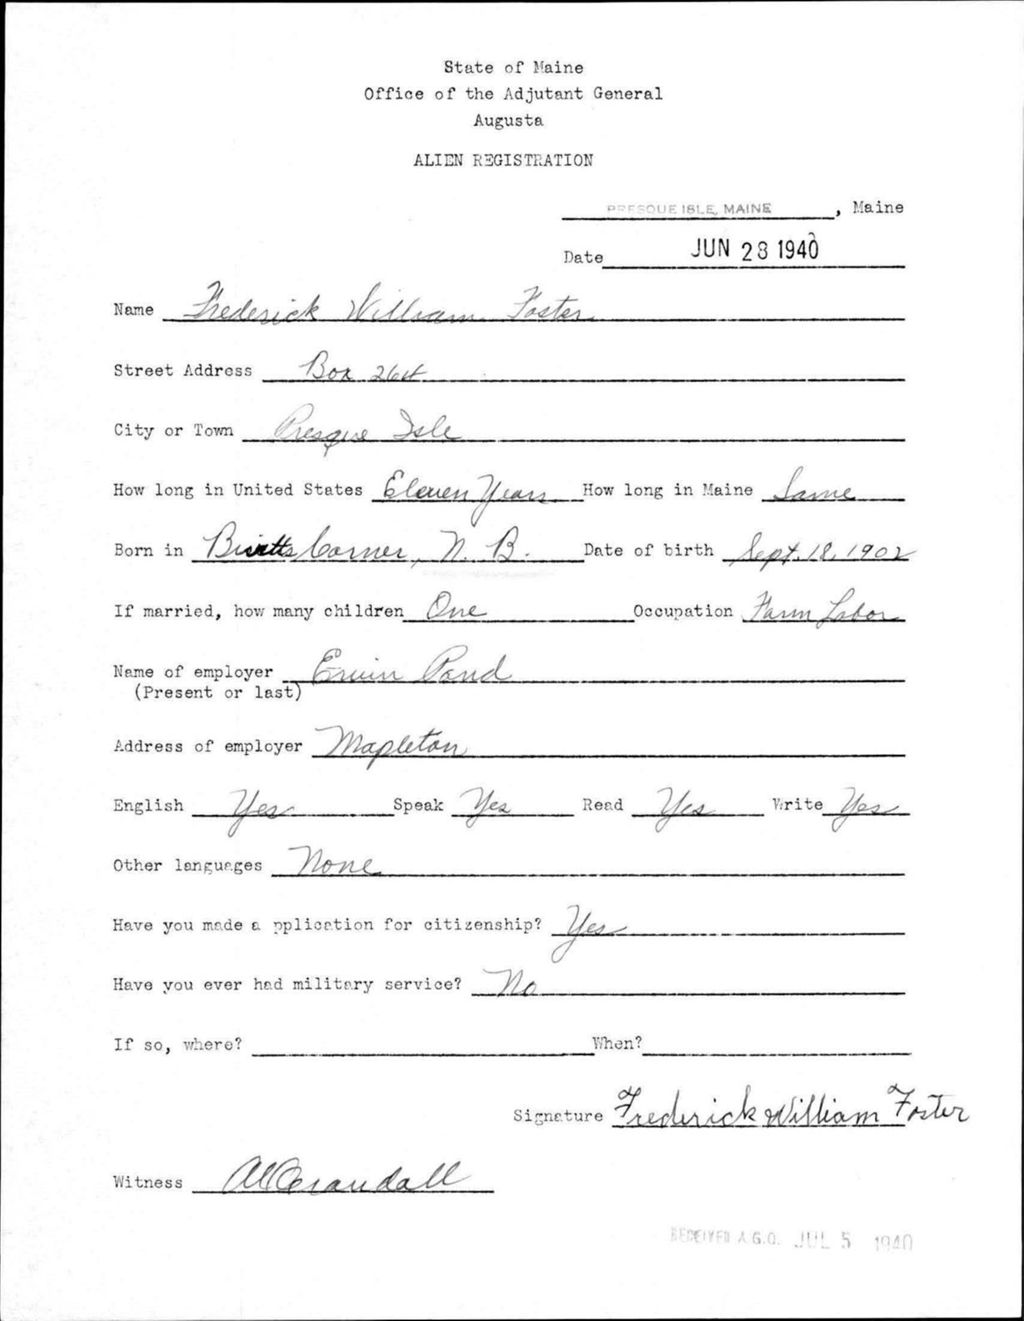 State of Maine
Office of the Adjutant General
Augusta
ALIEN REGISTRATION
PRESQUE ISLE, MAINE, Maine
Date JUN 28 1940
Name Frederick William Foster
Street Address Box 264
City or Town Presque Isle
How long in United States Eleven Years How long in Maine Same
Born in Corner, N. B. Date of birth Sept. 18, 1902
If married, how many children One Occupation Farm Labor
Name of employer Erwin Pand
(Present or last)
Address of employer Mapleton
English Yes Speak Yes Read Yes Write Yes
Other languages None
Have you made a pplication for citizenship? Yes
Have you ever had military service? No
If so, where? When?
Signature Frederick William Foster
Witness Al Crandall
RECEIVED A.G.O. JUL 5 1940